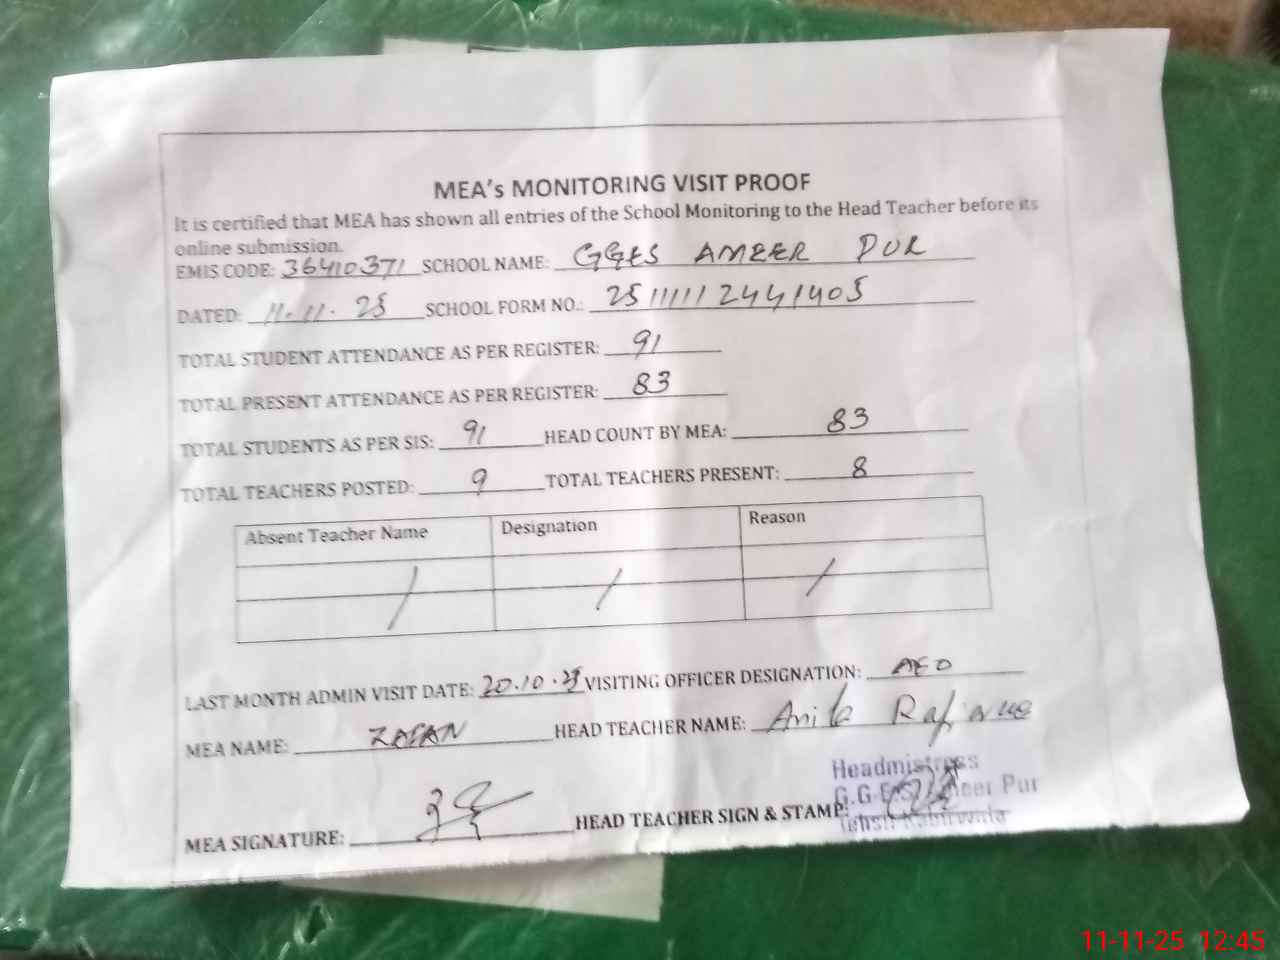 MEA's MONITORING VISIT PROOF
It is certified that MEA has shown all entries of the School Monitoring to the Head Teacher before its
online submission.
EMIS CODE: 36410371 SCHOOL NAME: GGES AMEER PUR
DATED: 11.11.25 SCHOOL FORM NO.: 25111112441405
TOTAL STUDENT ATTENDANCE AS PER REGISTER: 91
TOTAL PRESENT ATTENDANCE AS PER REGISTER: 83
TOTAL STUDENTS AS PER SIS: 91 HEAD COUNT BY MEA: 83
TOTAL TEACHERS POSTED: 9 TOTAL TEACHERS PRESENT: 8
Absent Teacher Name Designation Reason
/ / /
LAST MONTH ADMIN VISIT DATE: 20.10.25 VISITING OFFICER DESIGNATION: AEO
MEA NAME: HEAD TEACHER NAME: Anila
Headmistress
G.G.E.S Ameer Pur
MEA SIGNATURE: HEAD TEACHER SIGN & STAMP:
Tehsil Kabirwala
11-11-25 12:45